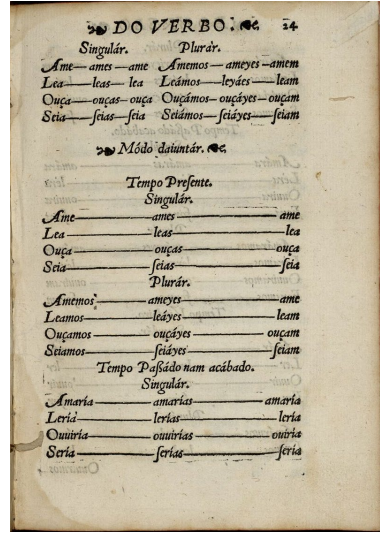 DO VERBO. 24
Singulár. Plurár.
Ame— ames — ame Amemos — ameyes — amem
Lea —— leas — lea Leámos — leyáes — leam
Ouça — ouças — ouça Ouçámos — ouçáyes — ouçam
Seia — ſeias — ſeia Seiámos — ſeiáyes — ſeiam
Módo daiuntár.
Tempo Preſente.
Singulár.
Ame — ames — ame
Lea — leas — lea
Ouça — ouças — ouça
Seia — ſeias — ſeia
Plurár.
Amemos — ameyes — ame
Leamos — leáyes — leam
Ouçamos — ouçáyes — ouçam
Seiamos — ſeiáyes — ſeiam
Tempo Paßádo nam acábado.
Singulár.
Amaría — amarías — amaría
Lería — lerías — lería
Ouviría — ouvirías — ouviria
Sería — ſerías — ſería